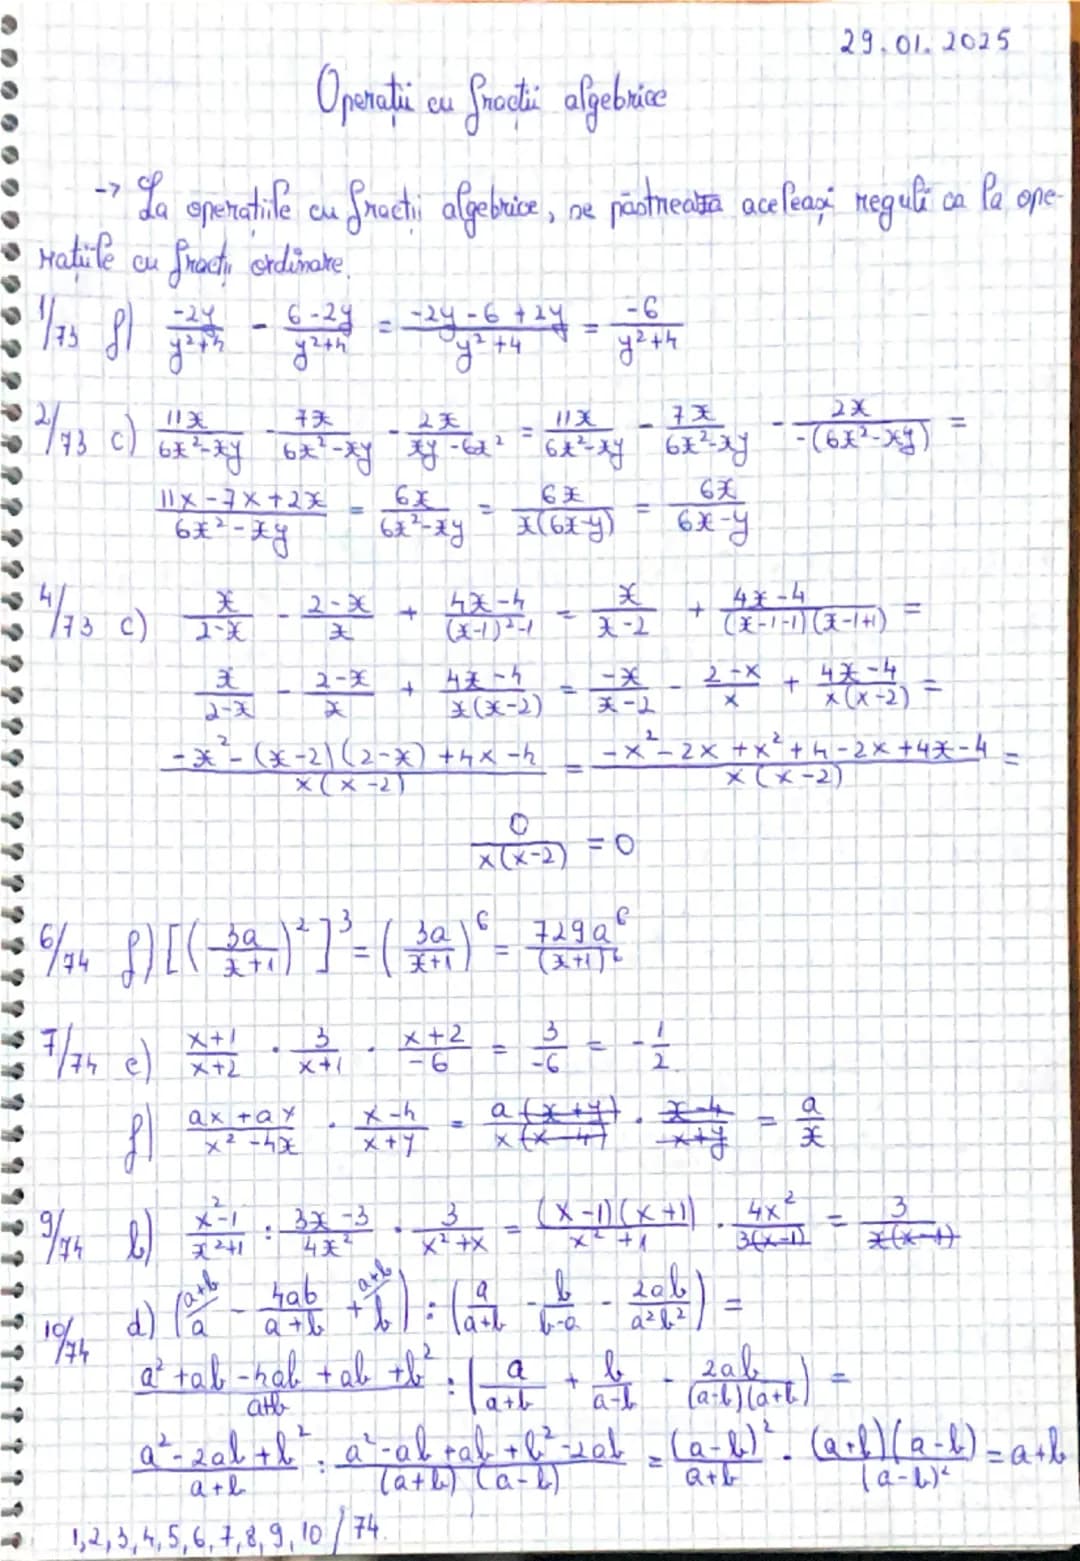 29.01.2025
Operații cu fracții algebrice
-> La operațiile cu fracții algebrice, se păstrează aceleași reguli ca la ope-
rațiile cu fracții ordinare.
1/73 f) -2y/(y²+4) - (6-2y)/(y²+4) = (-2y-6+2y)/(y²+4) = -6/(y²+4)
2/73 c) 11x/(6x²-xy) - 7x/(6x²-xy) - 2x/(xy-6x²) = 11x/(6x²-xy) - 7x/(6x²-xy) - 2x/(-(6x²-xy)) =
(11x-7x+2x)/(6x²-xy) = 6x/(6x²-xy) = 6x/(x(6x-y)) = 6x/(6x-y)
4/73 c) x/(2-x) - (2-x)/x + (4x-4)/((x-1)²-1) = x/(x-2) + (4x-4)/((x-1-1)(x-1+1)) =
x/(2-x) - (2-x)/x + (4x-4)/(x(x-2)) = -x/(x-2) - (2-x)/x + (4x-4)/(x(x-2)) =
(-x²-(x-2)(2-x)+4x-4)/(x(x-2)) = (-x²-2x+x²+4-2x+4x-4)/(x(x-2)) =
0/(x(x-2)) = 0
6/74 f) [(3a/(x+1))²]³ = (3a/(x+1))⁶ = 729a⁶/(x+1)⁶
7/74 e) (x+1)/(x+2) · 3/(x+1) · (x+2)/-6 = 3/-6 = -1/2
f) (ax+ay)/(x²-4x) · (x-4)/(x+y) = a(x+y)/(x(x-4)) · (x-4)/(x+y) = a/x
9/74 b) (x²-1)/(x²+1) : (3x-3)/4x² · 3/(x²+x) = (x-1)(x+1)/(x²+1) · 4x²/(3(x-1)) = 3/(x(x-1))
10/74 d) (a+b)/a - 4ab/(a+b) + (a+b)/b) : (a/(a+b) - b/(b-a) - 2ab/(a²b²)) =
(a²+ab-4ab+ab+b²)/(a+b) : (a/(a+b) + b/(a-b) - 2ab/((a-b)(a+b))) =
(a²-2ab+b²)/(a+b) : (a²-ab+ab+b²-2ab)/((a+b)(a-b)) = (a-b)²/(a+b) · (a+b)(a-b)/(a-b)² = a+b
1,2,3,4,5,6,7,8,9,10/74